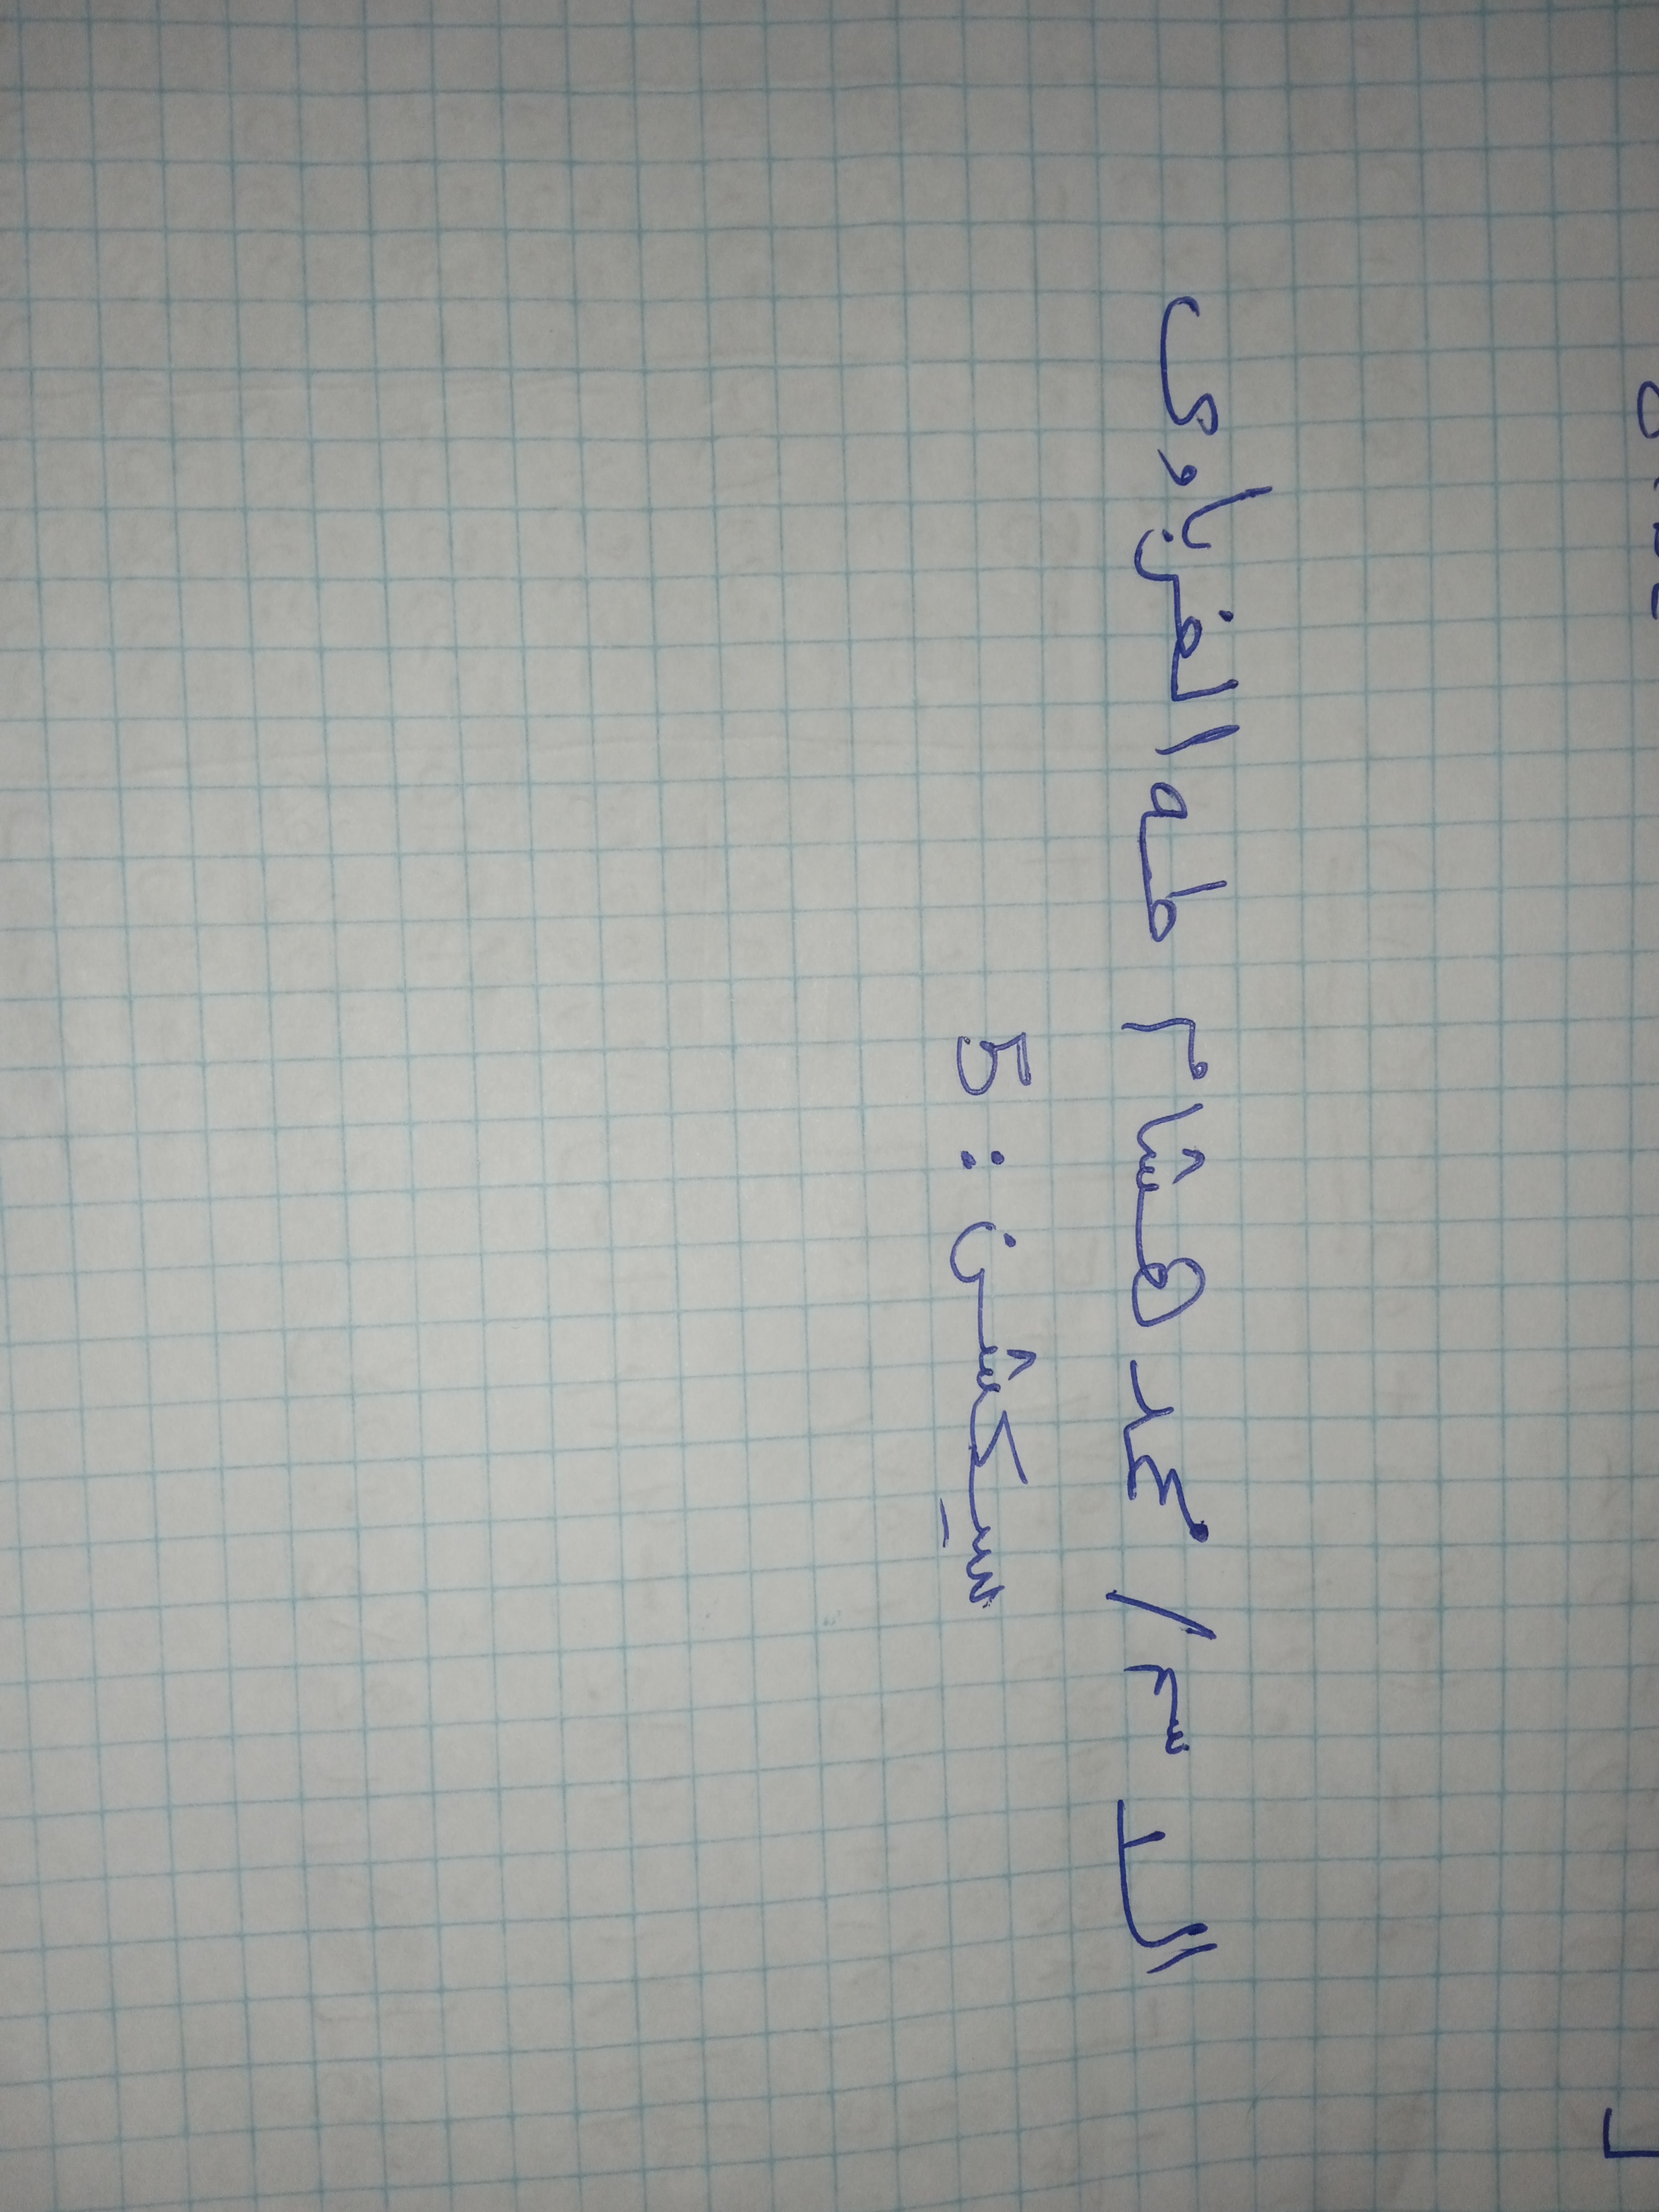 الاسم / محمد هشام طه الغرباوى
سيكشن : 5